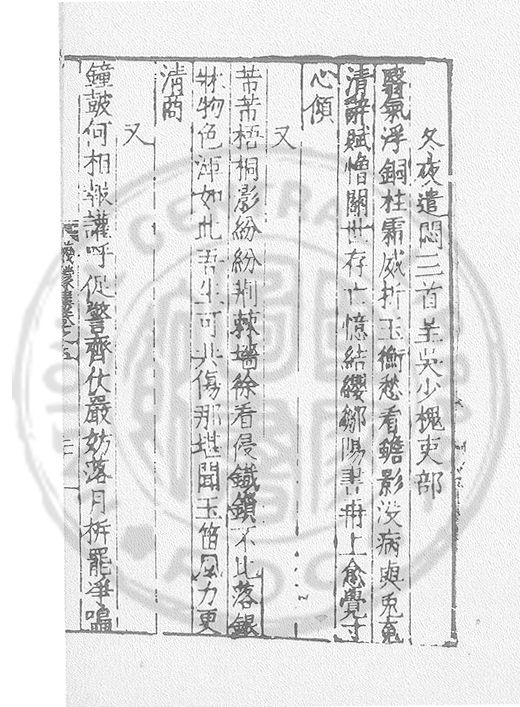 冬夜遣悶三首呈吳少槐吏部
翳氣浮銅柱霜威折玉衡愁看蟾影沒病與兎
清辭賦憎關世存亡憶結纓鄒陽書再上愈覺寸
心傾
又
苒苒梧桐影紛紛荆棘墻徐看侵鐵鎖不比落銀
牀物色渾如此吾生可共傷那堪聞玉笛風力更
清商
又
鐘皷何相報讙呼促警齊仗嚴妨落月柝罷爭鳴